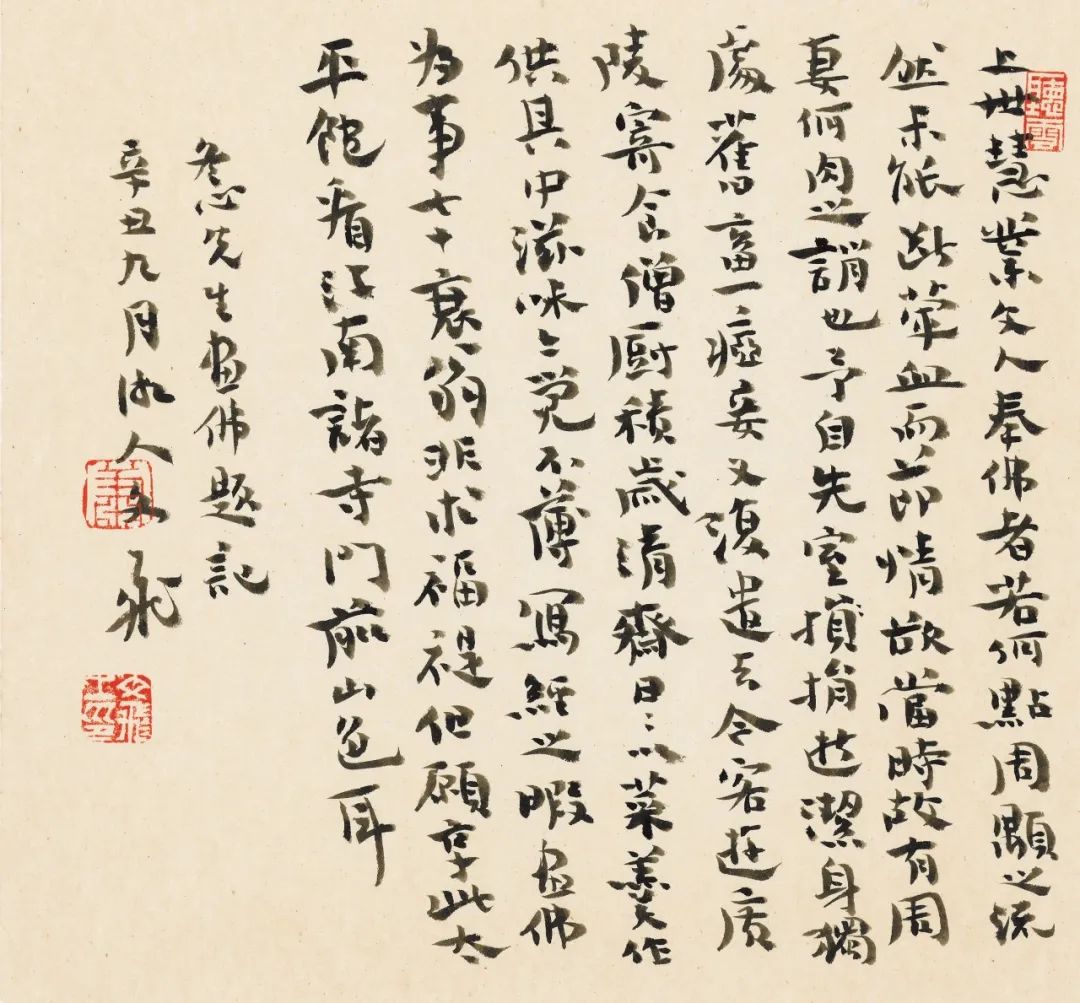 聽雲
上世慧業文人奉佛者若何點周顒之流
然未能斷葷血而節情欲當時故有周
妻何肉之誚也予自先室損捐逝潔身獨
處舊畜一瘂妾又復遣去今客遊廣
陵寄食僧廚積歲清齋日〻以菜羹作
供具中滋味亦覺不薄寫經之暇畫佛
為事七十衰翁非求福禔但願享此太
平飽看江南諸寺門前山色耳
冬心先生畫佛題記
辛丑九月湘人文飛